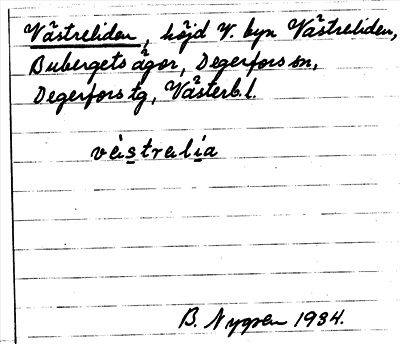 Västreliden, höjd V. byn Västreliden,
Bubergets ägor, Degerfors sn,
Degerfors tg, Västerb.l.
västralia
B. Nygren 1934.